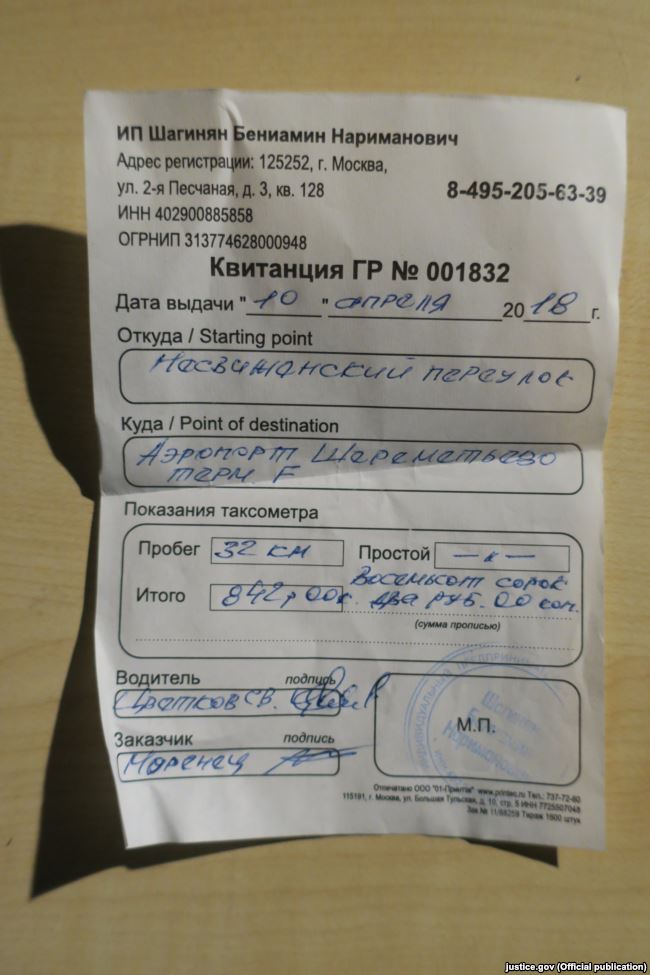 ИП Шагинян Бениамин Нариманович
Адрес регистрации: 125252, г. Москва,
ул. 2-я Песчаная, д. 3, кв. 128
8-495-205-63-39
ИНН 402900885858
ОГРНИП 313774628000948
Квитанция ГР № 001832
Дата выдачи "10" апреля 2018 г.
Откуда / Starting point
Несвижский переулок
Куда / Point of destination
Аэропорт Шереметьево
терм. F
Показания таксометра
Пробег 32 км Простой — к —
Итого 842р 00к. Восемьсот сорок
два руб. 00 коп.
(сумма прописью)
Водитель подпись
Заказчик подпись
Моренец
М.П.
ИНДИВИДУАЛЬНЫЙ ПРЕДПРИНИМАТЕЛЬ
Шагинян
Бениамин
Нариманович
Отпечатано ООО "01-Принтек" www.printec.ru Тел.: 737-72-60
115191, г. Москва, ул. Большая Тульская, д. 10, стр. 5 ИНН 7725507048
Зак № 11/88259 Тираж 1500 штук
justice.gov (Official publication)